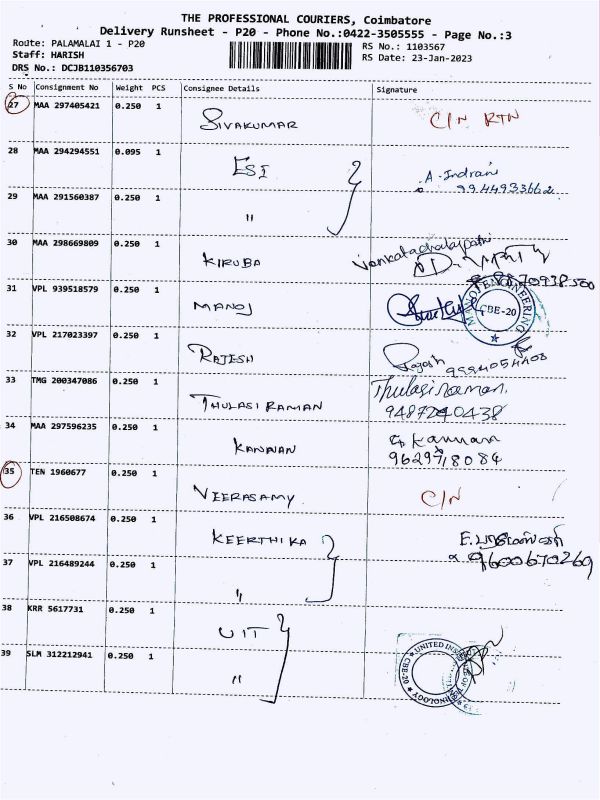 THE PROFESSIONAL COURIERS, Coimbatore
Delivery Runsheet - P20 - Phone No.:0422-3505555 - Page No.:3
Route: PALAMALAI 1 - P20
Staff: HARISH
DRS No.: DCJB110356703
RS No.: 1103567
RS Date: 23-Jan-2023
S No Consignment No Weight PCS Consignee Details Signature
27 MAA 297405421 0.250 1 SIVAKUMAR C/N RTN
28 MAA 294294551 0.095 1 ESI A. Indrani
9944933662
29 MAA 291560387 0.250 1 "
30 MAA 298669809 0.250 1 KIRUBA Venkatachalapathi
31 VPL 939518579 0.250 1 MANOJ
MANOJ ENGINEERING
CBE-20
32 VPL 217023397 0.250 1 RAJESH Rajesh
9994054408
33 TMG 200347086 0.250 1 THULASI RAMAN Thulasiraman.
9487240438
34 MAA 297596235 0.250 1 KANNAN Kannan
9629718084
35 TEN 1960677 0.250 1 VEERASAMY C/N
36 VPL 216508674 0.250 1 KEERTHIKA
9600670269
37 VPL 216489244 0.250 1 "
38 KRR 5617731 0.250 1 UIT
39 SLM 312212941 0.250 1 "
UNITED INSTITUTE OF TECHNOLOGY
CBE-20